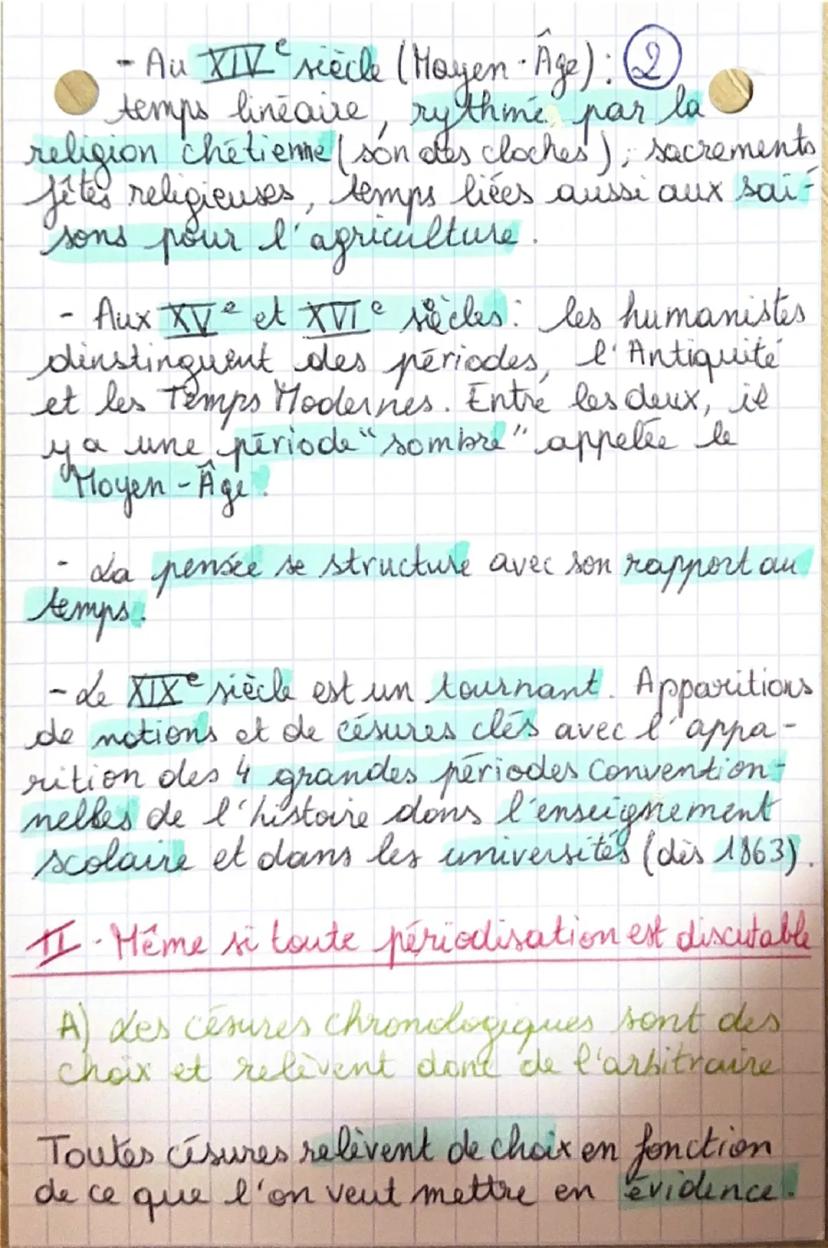 - Au XIVe siècle (Moyen-Âge) : 2
temps linéaire, rythmé par la
religion chétienne (son des cloches), sacrements
fêtes religieuses, temps liées aussi aux sai-
sons pour l'agriculture.
- Aux XVe et XVIe siècles : les humanistes
dinstinguent des périodes, l'Antiquité
et les Temps Modernes. Entre les deux, il
y a une période "sombre" appelée le
Moyen-Âge.
- La pensée se structure avec son rapport au
temps.
- Le XIXe siècle est un tournant. Apparitions
de notions et de césures clés avec l'appa-
rition des 4 grandes périodes convention-
nelles de l'histoire dans l'enseignement
scolaire et dans les universités (dès 1863).
II - Même si toute périodisation est discutable
A) Les césures chronologiques sont des
choix et relèvent donc de l'arbitraire
Toutes césures relèvent de choix en fonction
de ce que l'on veut mettre en évidence.